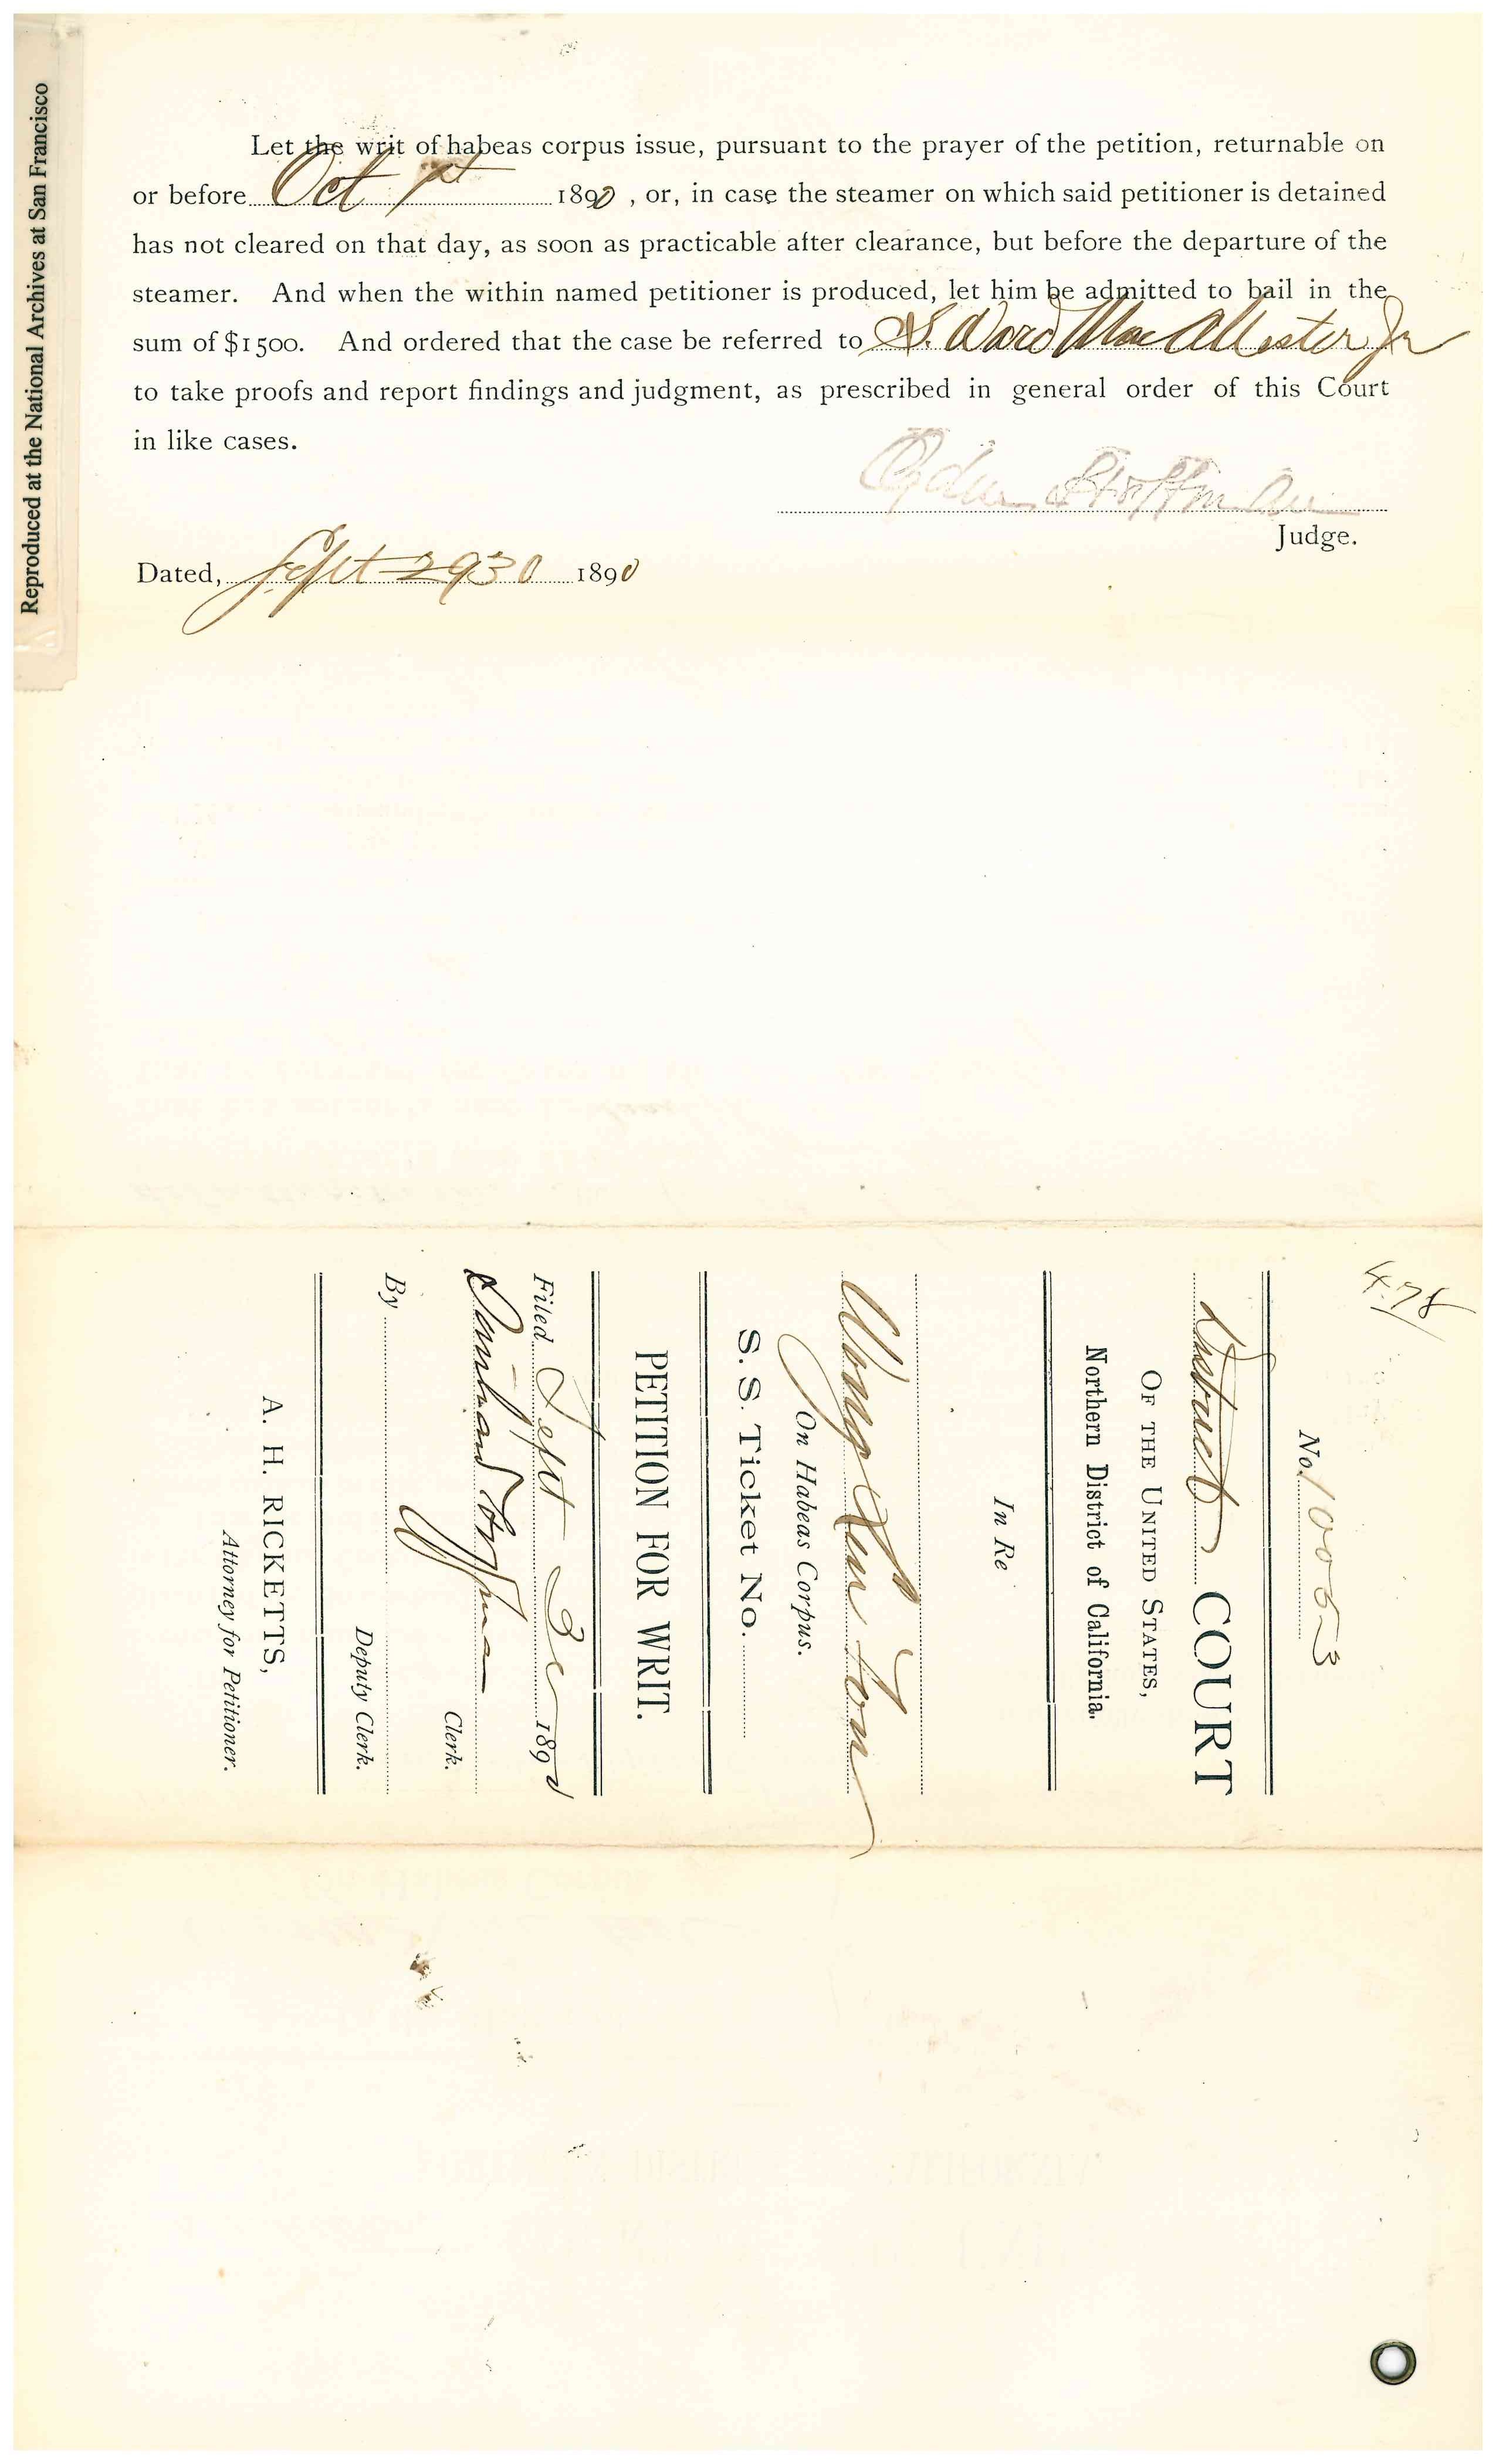 Reproduced at the National Archives at San Francisco
Let the writ of habeas corpus issue, pursuant to the prayer of the petition, returnable on
or before Oct 1st 1890, or, in case the steamer on which said petitioner is detained
has not cleared on that day, as soon as practicable after clearance, but before the departure of the
steamer. And when the within named petitioner is produced, let him be admitted to bail in the
sum of $1500. And ordered that the case be referred to S. Ward MacAllister Jr
to take proofs and report findings and judgment, as prescribed in general order of this Court
in like cases.
Ogden Hoffman
Judge.
Dated, Sept 29 30 1890
No. 10053
District COURT
OF THE UNITED STATES,
Northern District of California.
In Re
Wong
On Habeas Corpus.
S. S. Ticket No.
PETITION FOR WRIT.
Filed Sept 30 1890
Southard Hoffman
Clerk.
By
Deputy Clerk.
A. H. RICKETTS,
Attorney for Petitioner.